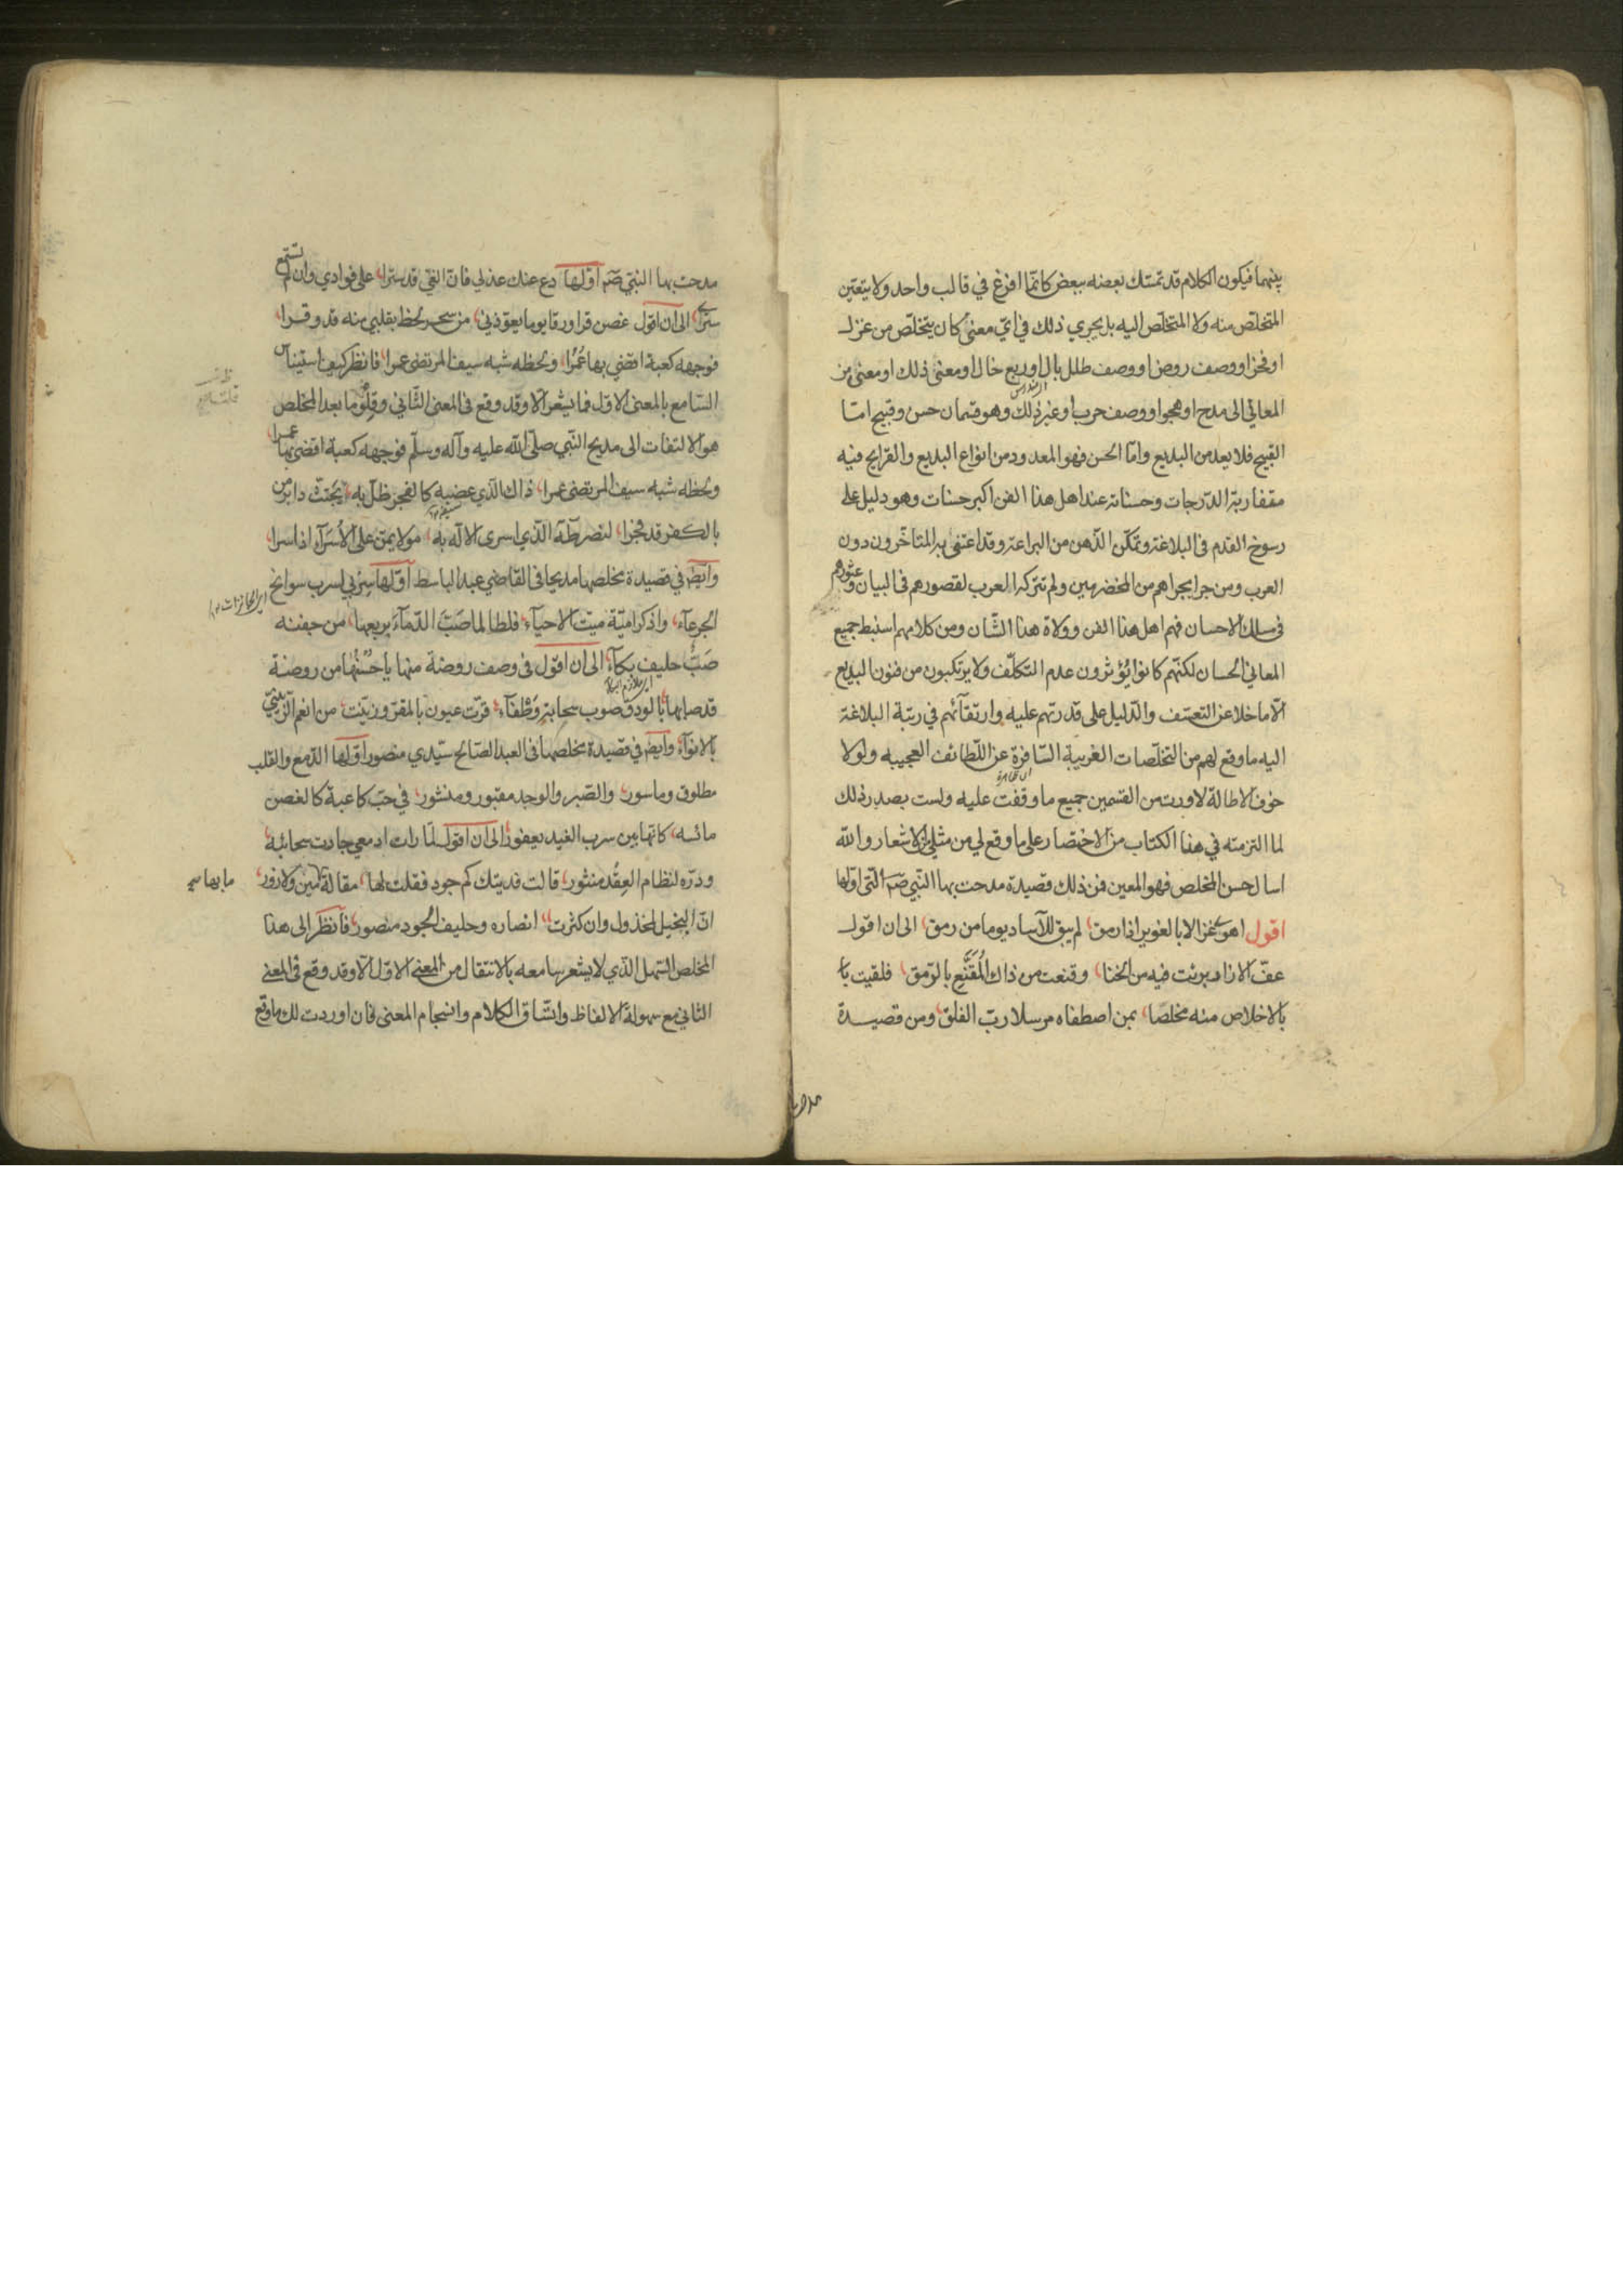 بينهما فيكون الكلام قد تمسّك بعضه ببعض كانّما افرغ في قالب واحد ولا يتعيّن
المتخلّص منه ولا المتخلّص اليه بل يجري ذلك في ايّ معنى كان يتخلّص من غزل
او فخر او وصف روض او وصف طلل بال او ربع خال او معنى ذلك او معنى من
المعاني الى مدح او هجو او وصف حرب او غير ذلك وهو قسمان حسن وقبيح امّا
القبيح فلا يعد من البديع وامّا الحسن فهو المعدود من انواع البديع والقرايح فيه
متفاوتة الدّرجات وحسناته عند اهل هذا الفن اكبر حسنات وهو دليل على
رسوخ القدم في البلاغة وتمكّن الذّهن من البراعة وقد اعتنى به المتاخّرون دون
العرب ومن جرا مجراهم من المخضرمين ولم تتركه العرب لقصورهم في البيان و عثورهم
في مسالك الاحسان فهم اهل هذا الفن وولاة هذا الشّان ومن كلامهم استنبط جميع
المعاني الحسان لكنّهم كانوا يؤثرون عدم التكلّف ولا يرتكبون من فنون البديع
الّا ما خلا عن التعسّف والدّليل على قدرتهم عليه وارتقآئهم في رتبة البلاغة
اليه ما وقع لهم من التخلّصات الغريبة السّافرة عن اللّطائف العجيبه ولولا
خوف الاطالة لاوردت من القسمين جميع ما وقفت عليه ولست بصدد ذلك
لما التزمته في هذا الكتاب من الاختصار على ما وقع لي من مثلي الاشعار والله
اسال حسن المخلص فهو المعين فمن ذلك قصيدة مدحت بها النّبي صم الّتي اوّلها
اقول اهو كغزالا بالغوير اذا رمق، لم يبق للآساد يوما من رمق، الى ان اقول
عفّ الازاد برئت فيه من الخنا، وقنعت من ذاك المُقَنَّعِ بالرّمق، فلقيت با
بالاخلاص منه مخلصا، بمن اصطفاه مرسلا ربّ الفلق، ومن قصيدة
مدحت
مدحت بها النّبي صم اوّلها دع عنك عذلي فانّ الغيّ قد سترا، على فوادي وان لم تستمع
سترى، الى ان اقول غصن قرا ورقا يوما يعوّذني، من سحر لحظ بقلبي منه قد وقرا،
فوجهه كعبة اقضي بها عُمُرًا، ولحظه شبه سيف المرتضى عمرا، فانظر كيف استيناس
السّامع بالمعنى الاوّل فما يشعر الّا وقد وقع في المعنى الثّاني وقلّ ما بعد المخلص
هو الالتفات الى مديح النّبي صلّى الله عليه وآله وسلّم فوجهه كعبة اقضي بها عمرا،
ولحظه شبه سيف المرتضى عمرا، ذاك الّذي عضبه كالفجر ظلّ به، يَجتثّ دابر من
بالكفر قد فجرا، لنصر طٰهَ الّذي اسرى الالٰه به، مولا يمنّ على الأُسَرآء اذا سرا،
وايضًا في قصيدة مخلصها مديحا في القاضي عبد الباسط اوّلها سِرْ بي لسرب سوانح
الجرعآء، واذكر اميّة ميّت الاحيآء، فلطالما صَبَّ الدّمآءَ بربعها، من جفنه
صَبٌّ حليف بكآء، الى ان اقول في وصف روضة منها يا حُسْنَها من روضة
قد صابها، بالودق صوب سحابةٍ وَطْفآء، قرّت عيون بالمقرّ وزيّنت، من انعم الزّينيّ
بالانوآء، وايضًا في قصيدة مخلصها في العبد الصّالح سيّدي منصور اوّلها الدّمع والقلب
مطلوق وماسور، والصّبر والوجد مقبور ومنشور، في حبّ كاعبة كالغصن
مائسه، كانّها بين سرب الغيد يعفور، الى ان اقول لمّا رات ادمعي جادت سحائبه،
ودرّه لنظام العِقْد منثور، قالت فديتك كم جود فقلت لها، مقالة مين ولا زور، ما بها
انّ البخيل لمخذول وان كثرت، انصاره وحليف الجود منصور، فانظر الى هذا
المخلص السّهل الّذي لا يشعر سامعه بالانتقال من المعنى الاوّل الّا وقد وقع في المعنى
الثاني مع سهولة الالفاظ واتّساق الكلام وانسجام المعنى فان اوردت لك ما وقع